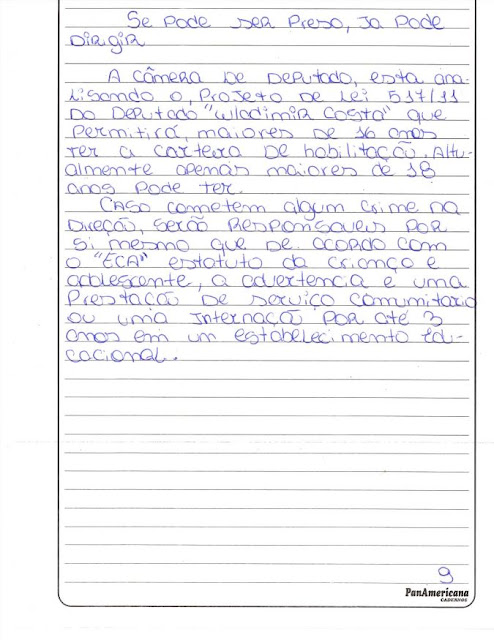 Se Pode ser Preso, Ja Pode
Dirgir
A Câmera De Deputado, esta ana-
lisando o, Projeto De Lei 517/11
Do Deputado "Wladimir Costa" que
Permitirá, maiores de 16 anos
ter a carteira de habilitação. Altu-
almente apenas maiores de 18
anos Pode ter.
Caso cometem algum crime na
Direção, serão Responsaveis Por
Si mesmo que de acordo com
o "ECA" estatuto da criança e
adolescente, a advertencia e uma
Prestação De serviço comunitario
ou uma Internação Por até 3
anos em um estabelecimento Edu-
cacional.
9
PanAmericana
CADERNOS